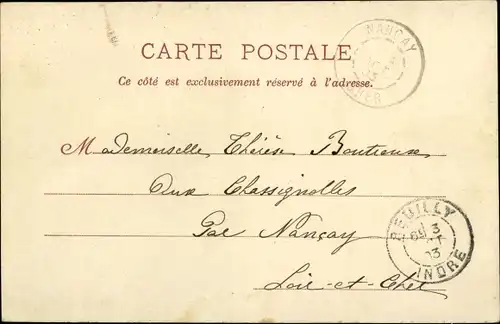 CARTE POSTALE
Ce côté est exclusivement réservé à l'adresse.
NANÇAY
CHER
Mademoiselle Thérèse Boutieux
Aux Chassignolles
Par Nançay
Loir-et-Cher
REUILLY
3
03
INDRE